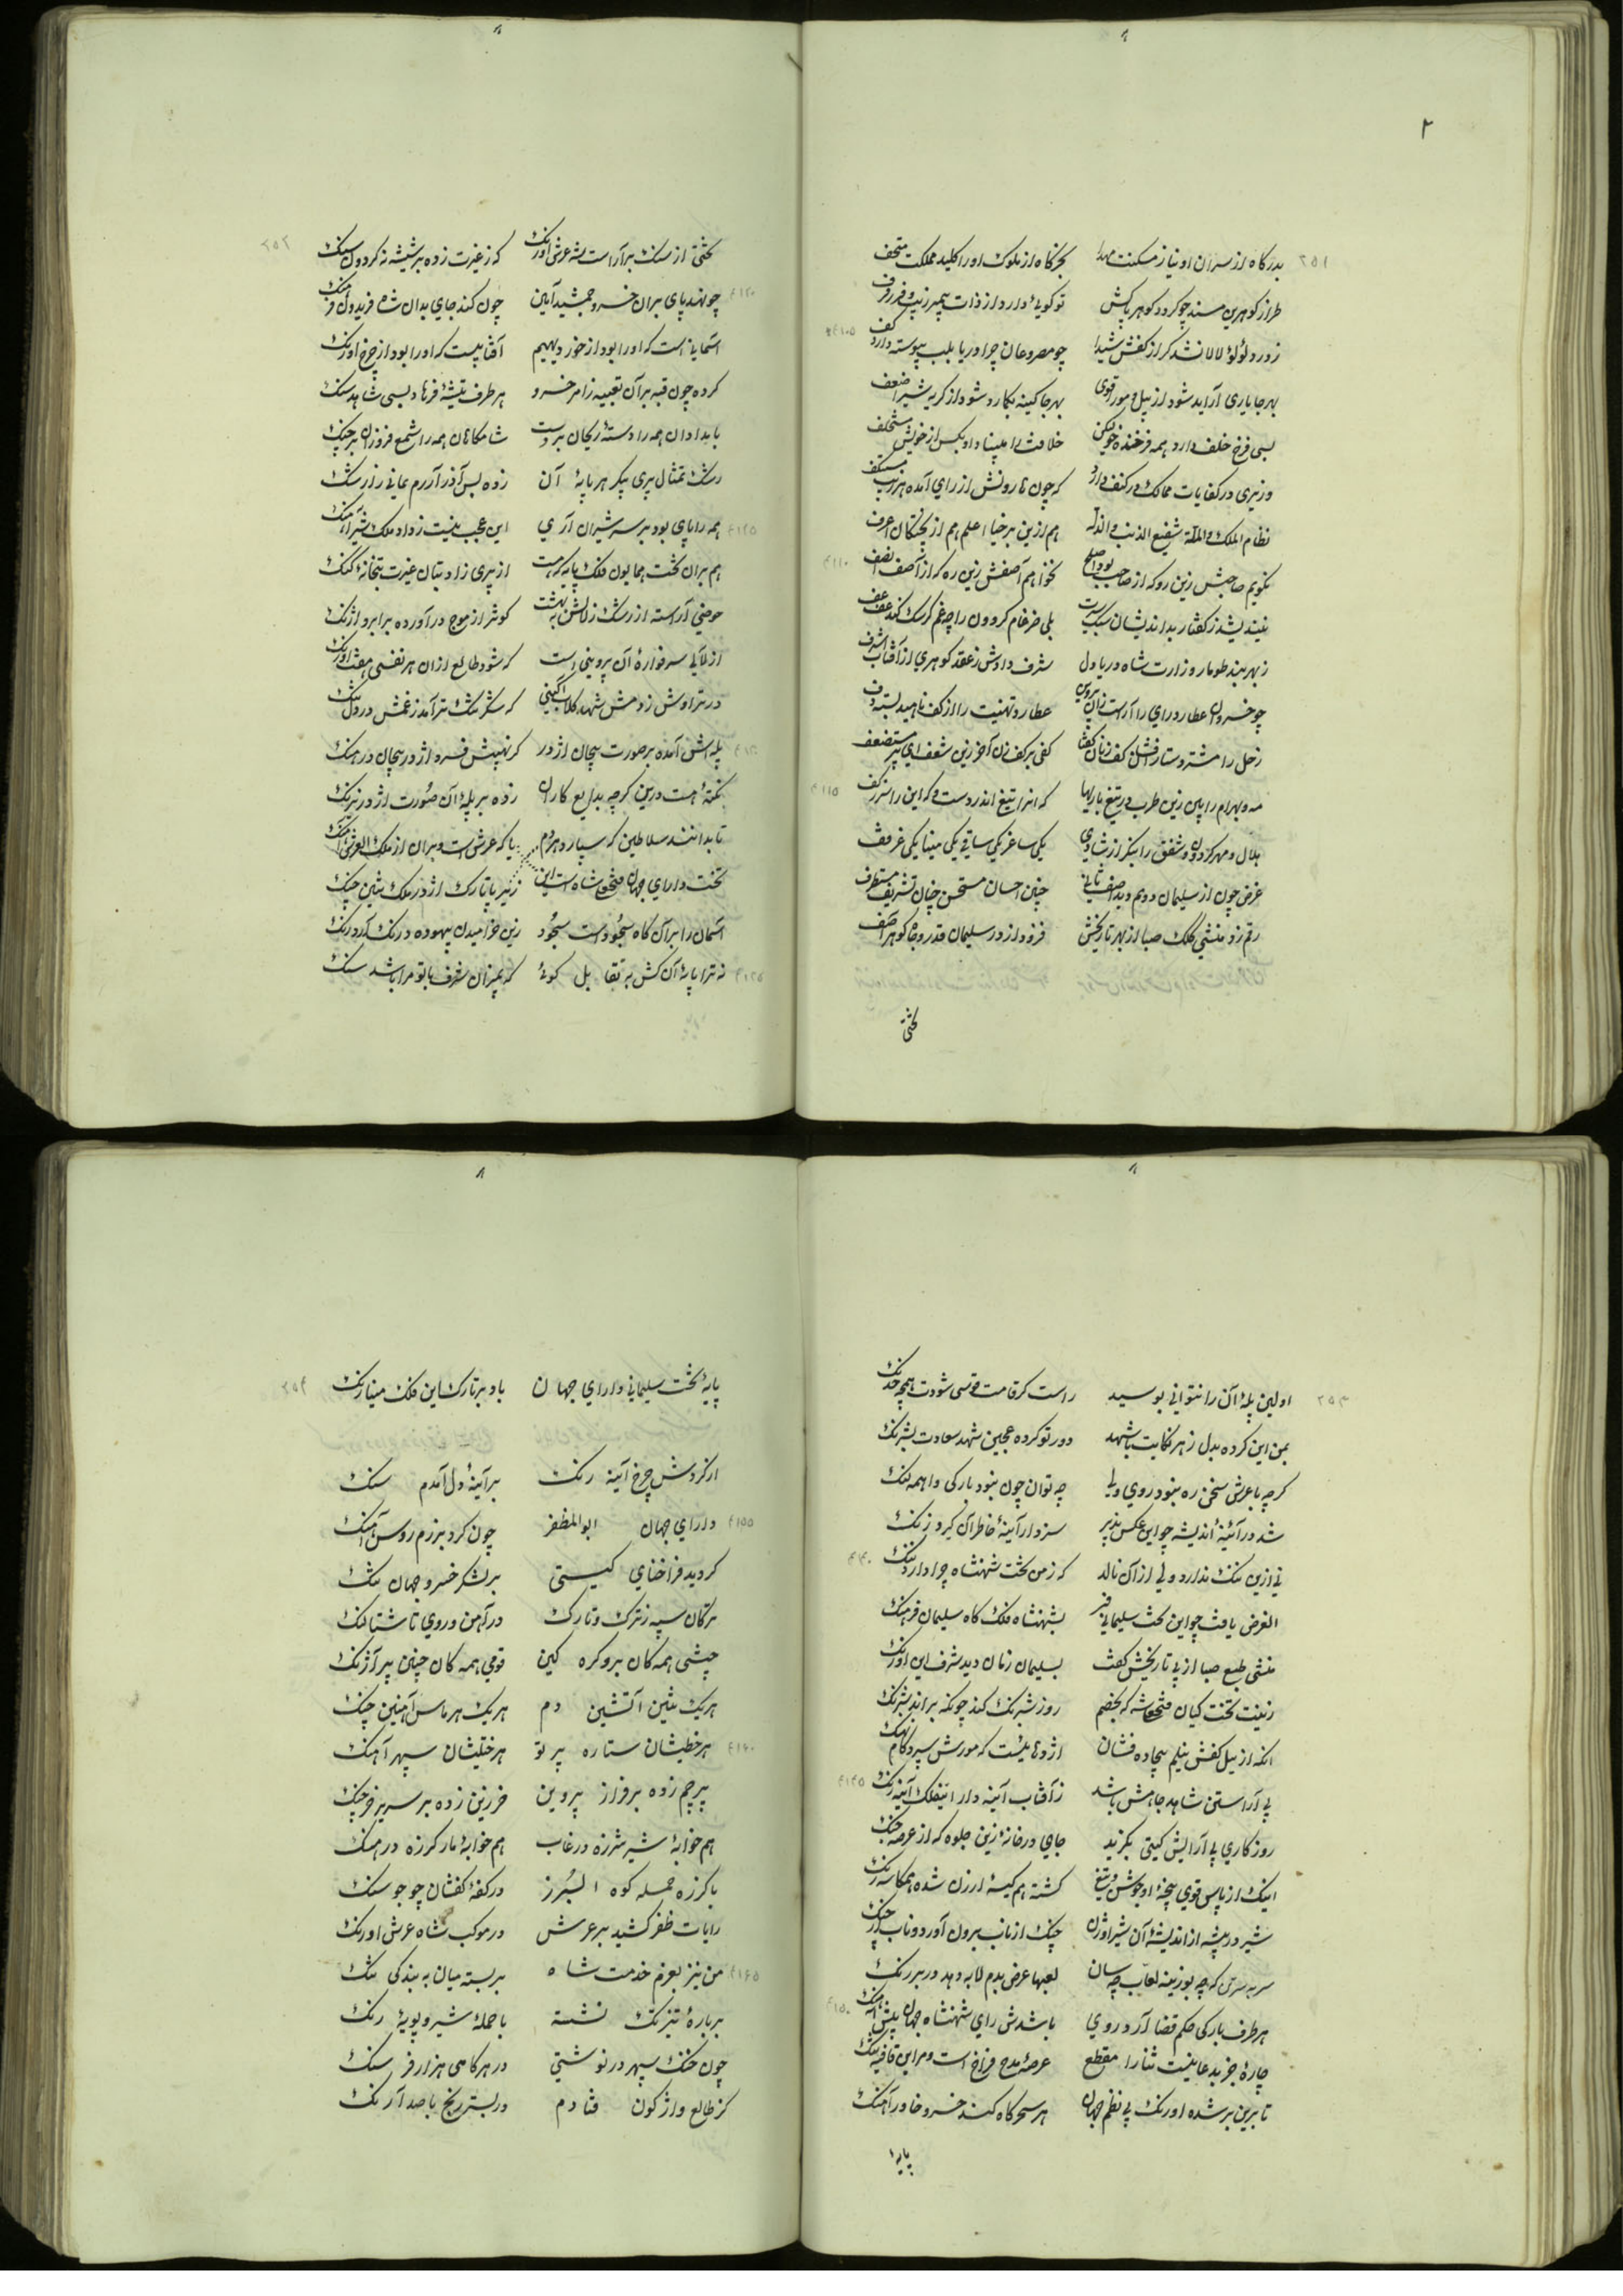 ۲
۲۵۱
بدرگاه از سران او نیاز مسکنت مهدا بخرگاه از ملوک او را کلید مملکت متحف
طراز گوهرین مسند چو گردد گوهر پاکش تو گوئی دارد از ذات پیمبر زیب و فر رفرف
ز درد لؤلؤ لالا نشد گر از کفش شیدا چو مصروعان چرا دریا بلب پیوسته دارد کف
بهر جا یاری آراید شود از پیل مور اقوی بهر جا کینه بگمارد شود از گربه شیر اضعف
بسی فرخ خلف دارد همه فرخنده خو لیکن خلافت را
وزیری در کفایات ممالک در کنف دارد که چون
نظام الملک و الملة شفیع الذنب و الذلة هم از زین برخیا اعلم هم از پختگان اعرف
نگویم صاحبش زین رو که از صاحب بود اصلح نخوانم آصفش زین ره که از آصف انصف
نیندیشد ز گفتار بداندیشان سبک سیرت بلی ضرغام گردون را چه غم گر سگ کند عف عف
ز بهر بند طومار وزارت شاه دریا دل شرف دادش ز عقد گوهری از آفتاب اشرف
چو خسرو آن عطارد رای را آراست زان پیرو عطارد تهنیت را از کف ناهید بستد دف
زحل را مشتر دستار افشان کف زنان گفتا کفی بر کف زن آخر زین شعف ای پیر مستضعف
مه و بهرام را بین زین طرب در تیغ بازیها که آنرا تیغ اندر دست و که این را سپر بر کف
هلال و مهر گردون و شفق را بنگر از شادی یکی ساغر یکی ساقی یکی مینا یکی غرقف
غرض چون از سلیمان دوم دید آصف ثانی چنین احسان مستحسن چنان تشریف مستطرف
رقم زد منشی کلک صبا از بهر تاریخش فزود از در سلیمان قدر و جاه گوهر آصف
تختی
۲۵۲
تختی از سنگ برآراست شه عرش اورنگ که ز غیرت زده بر شیشه نه گردون سنگ
چو نهد پای بران خسرو جمشید آیین چون کند جای بدان شاه فریدون فرهنگ
آسمانی است که او را بود از خور دیهیم آفتابیست که او را بود از چرخ اورنگ
کرده چون قبه بر آن تعبیه ز امر خسرو هر طرف تیشهٔ فرهاد بسی شاهد سنگ
بامدادان همه را دستهٔ ریحان بر دست شامگاهان همه را شمع فروزان بر چنگ
رشک تمثال پری پیکر هر پایهٔ آن زده بس آذر آزرم بمانی ز ارژنگ
همه را پای بود بر سر شیران آری این عجب نیست ز داد ملک شیر آهنگ
هم بران تخت همایون فلک پایه که هست از پری زاد بتان غیرت بتخانهٔ گنگ
حوضی آراسته از رشک زلالش به بهشت کوثر از موج در آورده بر ابرو آژنگ
از لآلی سر فوارهٔ آن پروینی است که شود طالع ازان هر نفسی هفت اورنگ
در تراوش ز دمش شهد گلاب آگینی که شکر تنگ تر آمد ز غمش در دل تنگ
پله اش آمده بر صورت پیچان اژدر کز نهیبش فسرد اژدر پیچان در هنگ
نکتهٔ هست درین گر چه بدایع کاران زده بر پلهٔ آن صورت اژدر نیرنگ
تا بدانند سلاطین که سپارد هر دم یا که عرش است و بران از ملک العرش آهنگ
تخت دارای جهان فتحعلی شاه است این زیر پا تارک اژدر ملک شیرین چنگ
آسمان را بر آن گاه سجود است سجود زین خرامیدن بیهوده درنگ آر درنگ
نه ترا پایهٔ آن کش به تقابل گوئی که بمیزان شرف با تو مرا باشد سنگ
۲۵۳
اولین پلهٔ آن را نتوانی بوسید راست گر قامت قوسی شودت همچو خدنگ
بمن این کرده بدل زهر نکایت با شهد دور تو کرده عجین شهد سعادت بشرنگ
گر چه با عرش سخن ره نبود روی ولی چه توان چون نبود بارگی واهمه لنگ
شد در آئینهٔ اندیشه چو این عکس پذیر سزد ار آینهٔ خاطر آن گیرد زنگ
نی ازین ننگ ندارد ولی از آن نالد که ز من تخت شهنشاه چرا دارد ننگ
الغرض یافت چو این تخت سلیمانی فر بشهنشاه فلک گاه سلیمان فرهنگ
منشی طبع صبا از پی تاریخش گفت بسلیمان زمان دید شرف این اورنگ
زینت تخت کیان فتحعلیشه که بخصم روز شبرنگ کند چونکه براند شبرنگ
آنکه از بیل کفش نیلم بیجاده فشان اژدهائیست که مورش سپرد کام نهنگ
پی آراستن شاهد جاهش باشد ز آفتاب آینه دار این فلک آینه رنگ
روزگاری پی آرایش گیتی بگزید جای در خانهٔ زین جلوه گه از عرصهٔ جنگ
اینک از پاس قوی پنجهٔ او جوشن و تیغ گشته هم کیسهٔ ارزن شده همکاسه رنگ
شیر در بیشه از اندیشهٔ آن شیر اوژن چنگ از ناب برون آورد و ناب از چنگ
سر به سر تن که چه بوزینه لعاب چه سان لعبها عرض بدم لابه دهد در بر رنگ
هر طرف بارگی حکم قضا آرد روی باشدش رای شهنشاه جهان پیش آهنگ
چارهٔ جز بدعا نیست ثنا را مقطع عرصهٔ مدح فراخ است و مر این قافیه تنگ
تا برین بر شده اورنگ پی نظم جهان هر سحرگاه کند خسرو خاور آهنگ
پایه
۲۵۴
پایهٔ تخت سلیمانی دارای جهان باد بر تارک این فلک مینا رنگ
از گردش چرخ آینه رنگ بر آینهٔ دل آمدم سنگ
دارای جهان ابوالمظفر چون کرد برزم روس آهنگ
گردید فراخنای گیتی بر لشکر خسرو جهان تنگ
ترکان سپه ز ترک و تارک در آهن و روی تا شتالنگ
جیشی همه کان برو گره کین قومی همه کان چنین پر آژنگ
هر یک تنین آتشین دم هر یک هرماس آهنین چنگ
هر خطیشان ستاره پرتو هر ختلیشان سپهر آهنگ
پرچم زده بر فراز پروین فرزین زده بر سریر خرچنگ
هم خوابهٔ شیر شرزه در غاب هم خوابهٔ مار گرزه در هنگ
با گرزهٔ حمله کوه البرز در کفهٔ کفشان چو جو سنگ
رایات ظفر کشید بر عرش در موکب شاه عرش اورنگ
من نیز بعزم خدمت شاه بر بسته میان به بندگی تنگ
بر بارهٔ تیز تک نشسته با حملهٔ شیر و پویهٔ رنگ
چون خنگ سپهر در نوشتی در هر گامی هزار فرسنگ
کز طالع واژگون فتادم در بستر رنج با صد آزنگ